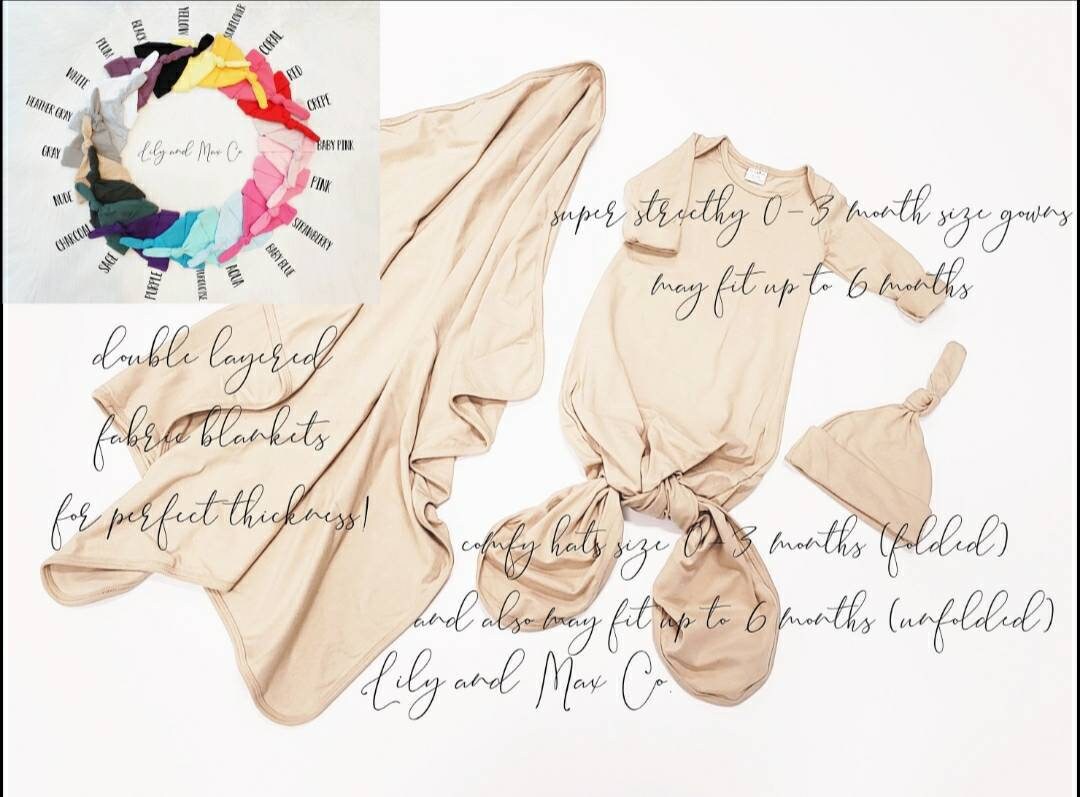 MUTED
SUNFLOWER
BLACK
CORAL
PLUM
RED
WHITE
CREPE
HEATHER GRAY
BABY PINK
Lily and Max Co
GRAY
PINK
NUDE
STRAWBERRY
CHARCOAL
BABY BLUE
SAGE
AQUA
PURPLE
TURQUOISE
super stretchy 0-3 month size gowns
may fit up to 6 months
double layered
fabric blankets
for perfect thickness!
comfy hats size 0-3 months (folded)
and also may fit up to 6 months (unfolded)
Lily and Max Co.